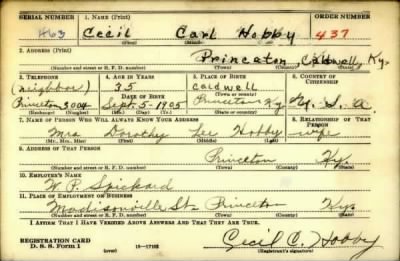 SERIAL NUMBER 1. NAME (Print) ORDER NUMBER
463 Cecil Carl Hobby 437
(First) (Middle) (Last)
2. ADDRESS (Print)
Princeton, Caldwell, Ky.
(Number and street or R. F. D. number) (Town) (County) (State)
3. TELEPHONE 4. AGE IN YEARS 5. PLACE OF BIRTH 6. COUNTRY OF CITIZENSHIP
(neighbor) 35 Caldwell
DATE OF BIRTH (Town or county)
Princeton 3004 Sept. 5-1905 Princeton Ky U. S. A
(Exchange) (Number) (Mo.) (Day) (Yr.) (State or country)
7. NAME OF PERSON WHO WILL ALWAYS KNOW YOUR ADDRESS 8. RELATIONSHIP OF THAT PERSON
Mrs Dorothy Lee Hobby wife
(Mr., Mrs., Miss) (First) (Middle) (Last)
9. ADDRESS OF THAT PERSON
Princeton Ky.
(Number and street or R. F. D. number) (Town) (County) (State)
10. EMPLOYER'S NAME
W. P. Spickard
11. PLACE OF EMPLOYMENT OR BUSINESS
Madisonville St. Princeton Ky
(Number and street or R. F. D. number) (Town) (County) (State)
I AFFIRM THAT I HAVE VERIFIED ABOVE ANSWERS AND THAT THEY ARE TRUE.
REGISTRATION CARD
D. S. S. Form 1 (over) 16-17105 Cecil C. Hobby
(Registrant's signature)